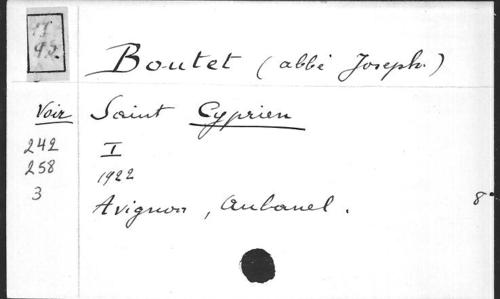 Boutet (abbé Joseph.)
Voir
242
258
3
Saint Cyprien
I
1922
Avignon, Aubanel.
8°